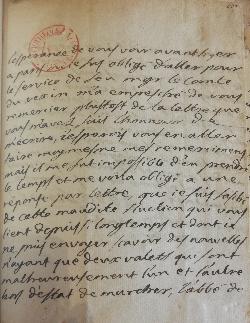 l'esperance de vous voir avant hyer
a paris ie fus obligé d'aller pour
le service de feu mgr le comte
du vexin m'a empesché de vous
remercier plustost de la lettre que
vous m'avez fait l'honneur de
m'écrire, i'esperois vous en aller
faire moy mesme mes remerciemens
mais il me fut impossible d'en prendre
le temps et me voila obligé a une
réponse par lettre, que ie suis
de cette maudite fluction qui vous
tient depuis si longtemps et dont ie
ne puis envoyer scavoir des nouvelles
n'ayant que deux valets qui sont
malheureusement l'un et l'autre
hors d'estat de marcher, l'abbé de